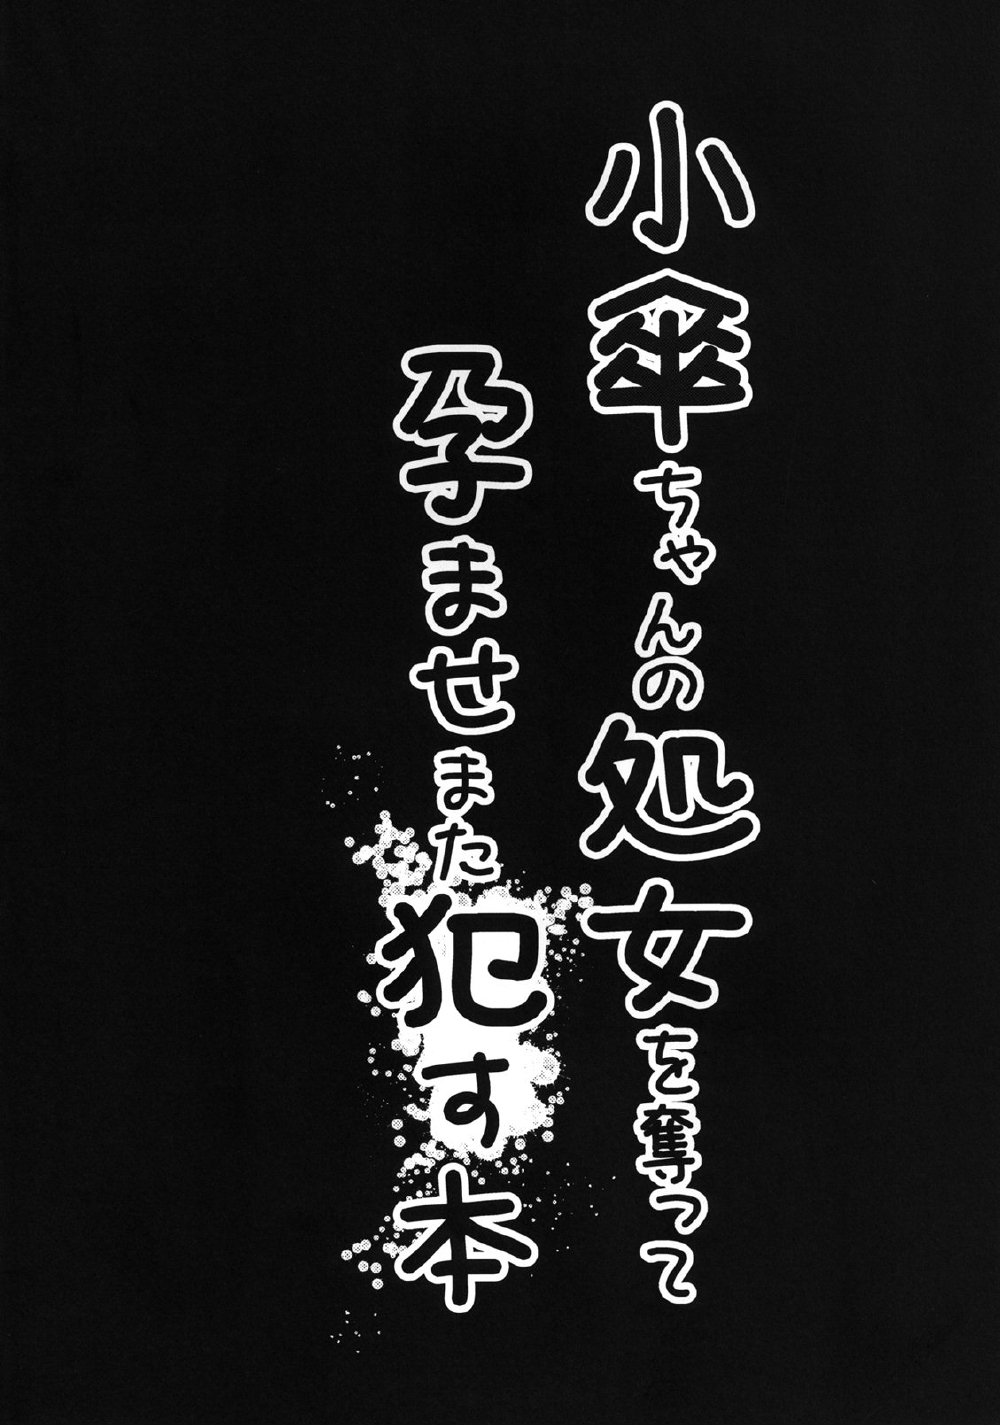 小傘ちゃんの処女を奪って
孕ませまた犯す本